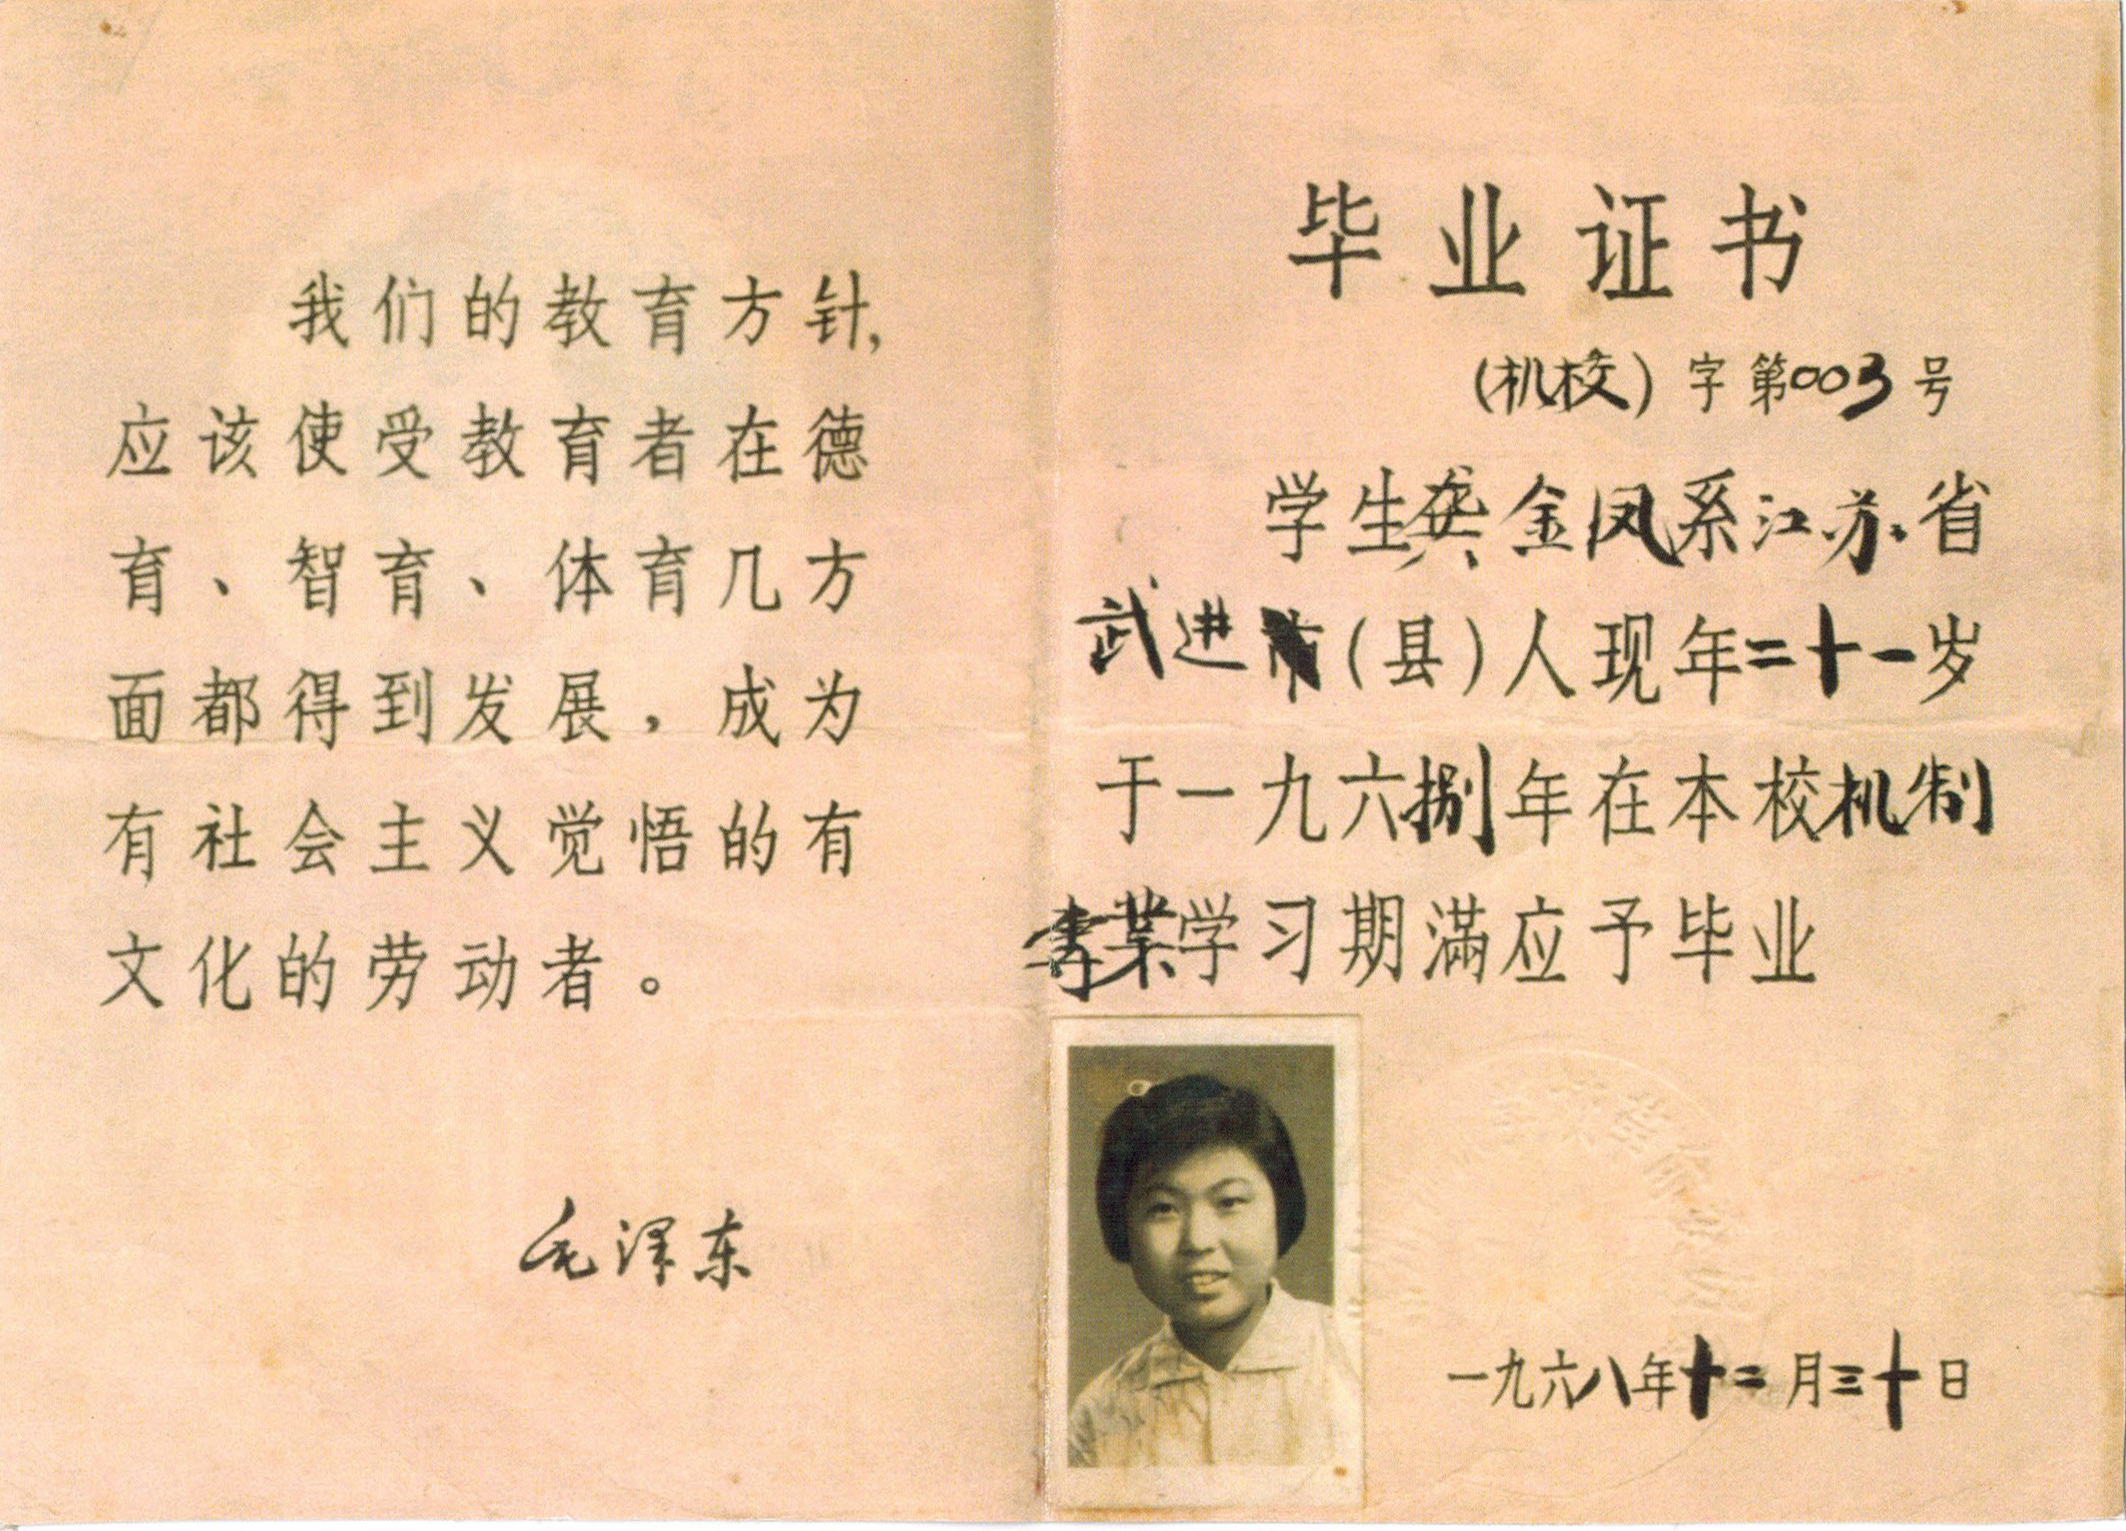 我们的教育方针,
应该使受教育者在德
育、智育、体育几方
面都得到发展,成为
有社会主义觉悟的有
文化的劳动者。
毛泽东
毕业证书
(机校)字第003号
学生龚金凤系江苏省
武进市(县)人现年二十一岁
于一九六捌年在本校机制
专業学习期滿应予毕业
一九六八年十二月三十日